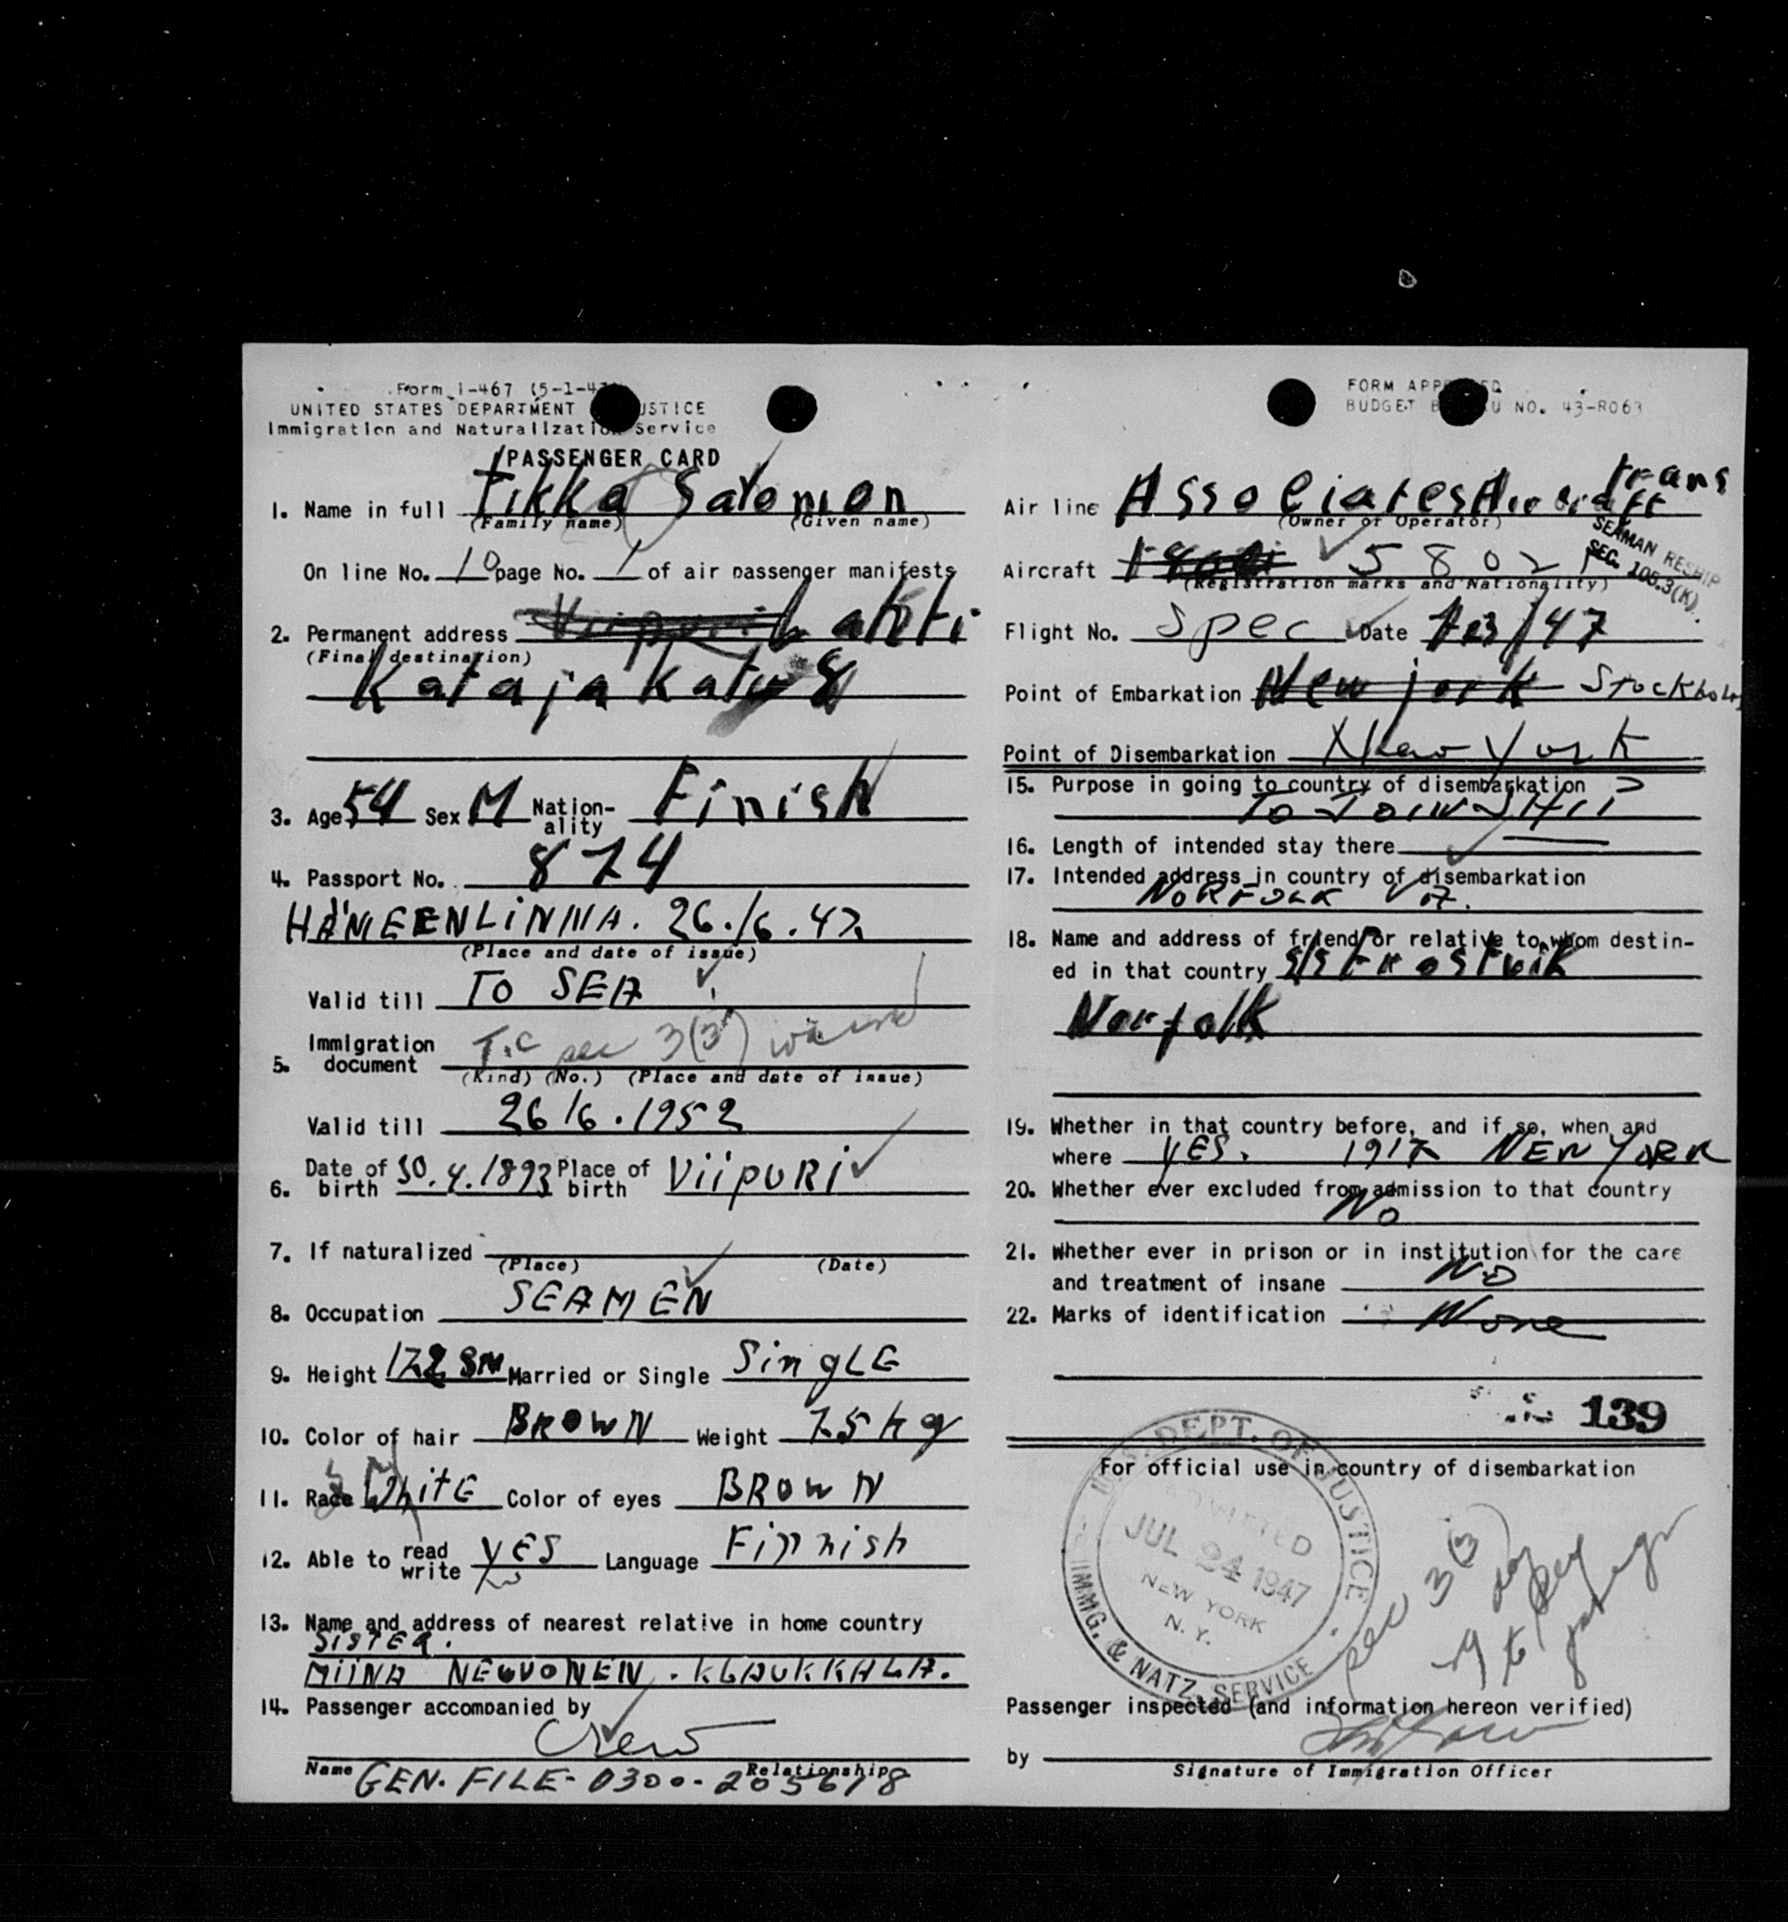 Form I-467 (5-1-47)
UNITED STATES DEPARTMENT JUSTICE
Immigration and Naturalization Service
PASSENGER CARD
1. Name in full Tikka Salomon
(Family name) (Given name)
On line No. 10 page No. 1 of air passenger manifests
2. Permanent address Viipuri Lahti
(Final destination)
Katajakatu 8
3. Age 54 Sex M Nation-ality Finish
4. Passport No. 874
HÄMEENLINNA. 26./6.47
(Place and date of issue)
Valid till TO SEA
5. Immigration document T.C sec 3(3) waived
(Kind) (No.) (Place and date of issue)
Valid till 26/6.1952
6. Date of birth 30.4.1893 Place of birth ViipURi
7. If naturalized
(Place) (Date)
8. Occupation SEAMEN
9. Height 172 Married or Single SingLE
10. Color of hair BROWN Weight 75 kg
11. Race WhitE Color of eyes BROWN
12. Able to read write YES Language Finnish
13. Name and address of nearest relative in home country
SISTER.
MIINA NEUVONEN. KLAUKKALA.
14. Passenger accompanied by
Crew
Name Relationship
GEN. FILE- 0300-205678
FORM APPROVED
BUDGET BUREAU NO. 43-R063
trans
Air line Associates Aircraft
(Owner or Operator)
SEAMAN RESHIP
SEC. 105.3(K).
Aircraft 5802
(Registration marks and Nationality)
Flight No. Spec Date 7/23/47
Point of Embarkation New jork Stockholm
Point of Disembarkation New York
15. Purpose in going to country of disembarkation
TO JOIN SHIP
16. Length of intended stay there —
17. Intended address in country of disembarkation
NORFOLK VA.
18. Name and address of friend or relative to whom destin-
ed in that country S/S Frostvik
Norfolk
19. Whether in that country before, and if so, when and
where YES. 1917 NEW YORK
20. Whether ever excluded from admission to that country
No
21. Whether ever in prison or in institution for the care
and treatment of insane NO
22. Marks of identification None
139
For official use in country of disembarkation
U.S. DEPT. OF JUSTICE
ADMITTED
JUL 24 1947
NEW YORK
N. Y.
IMMG. & NATZ. SERVICE
sec 3(3)
Passenger inspected (and information hereon verified)
by
Signature of Immigration Officer